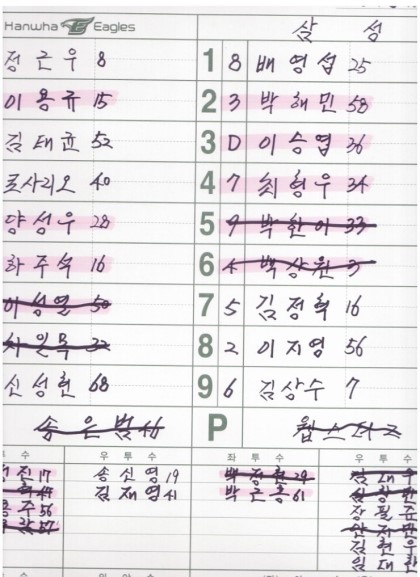 Hanwha Eagles 삼성
정근우 8 1 8 배영섭 25
이용규 15 2 3 박해민 58
김태균 52 3 D 이승엽 36
로사리오 40 4 7 최형우 34
양성우 28 5 9 박한이 33
하주석 16 6 4 백상원 3
이성열 50 7 5 김정혁 16
차일목 32 8 2 이지영 56
신성현 68 9 6 김상수 7
송은범 46 P 웹스터
수 우투수 좌투수 우투수
17 송신영 19 백정현 29
김재영 41 박근홍 61
56 장필준
57 안지만
김현우
임대한